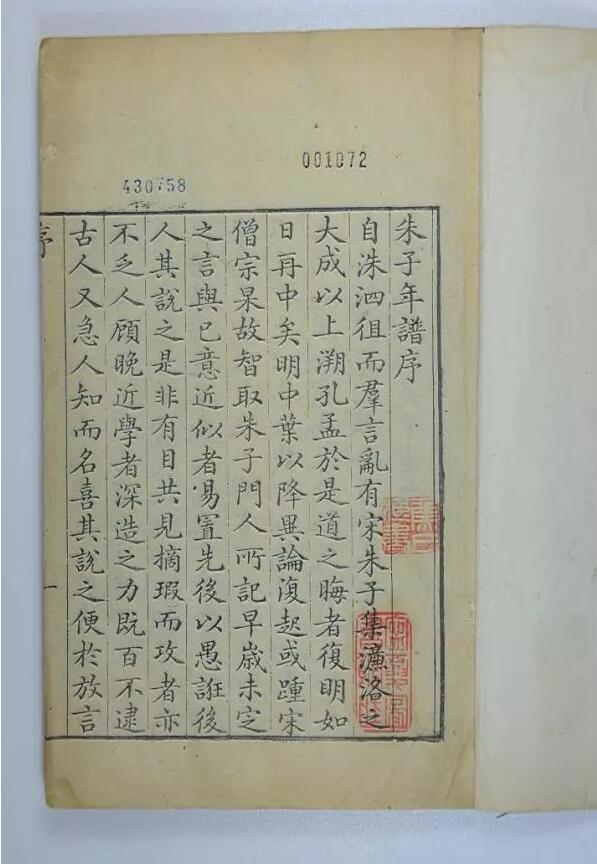 001072
430758
朱子年譜序
自洙泗徂而羣言亂有宋朱子集濂洛之
大成以上溯孔孟於是道之晦者復明如
日再中矣明中葉以降異論復起或踵宋
僧宗杲故智取朱子門人所記早歲未定
之言與已意近似者易置先後以愚誑後
人其說之是非有目共見摘瑕而攻者亦
不乏人顧晚近學者深造之力既百不逮
古人又急人知而名喜其說之便於放言
序
一